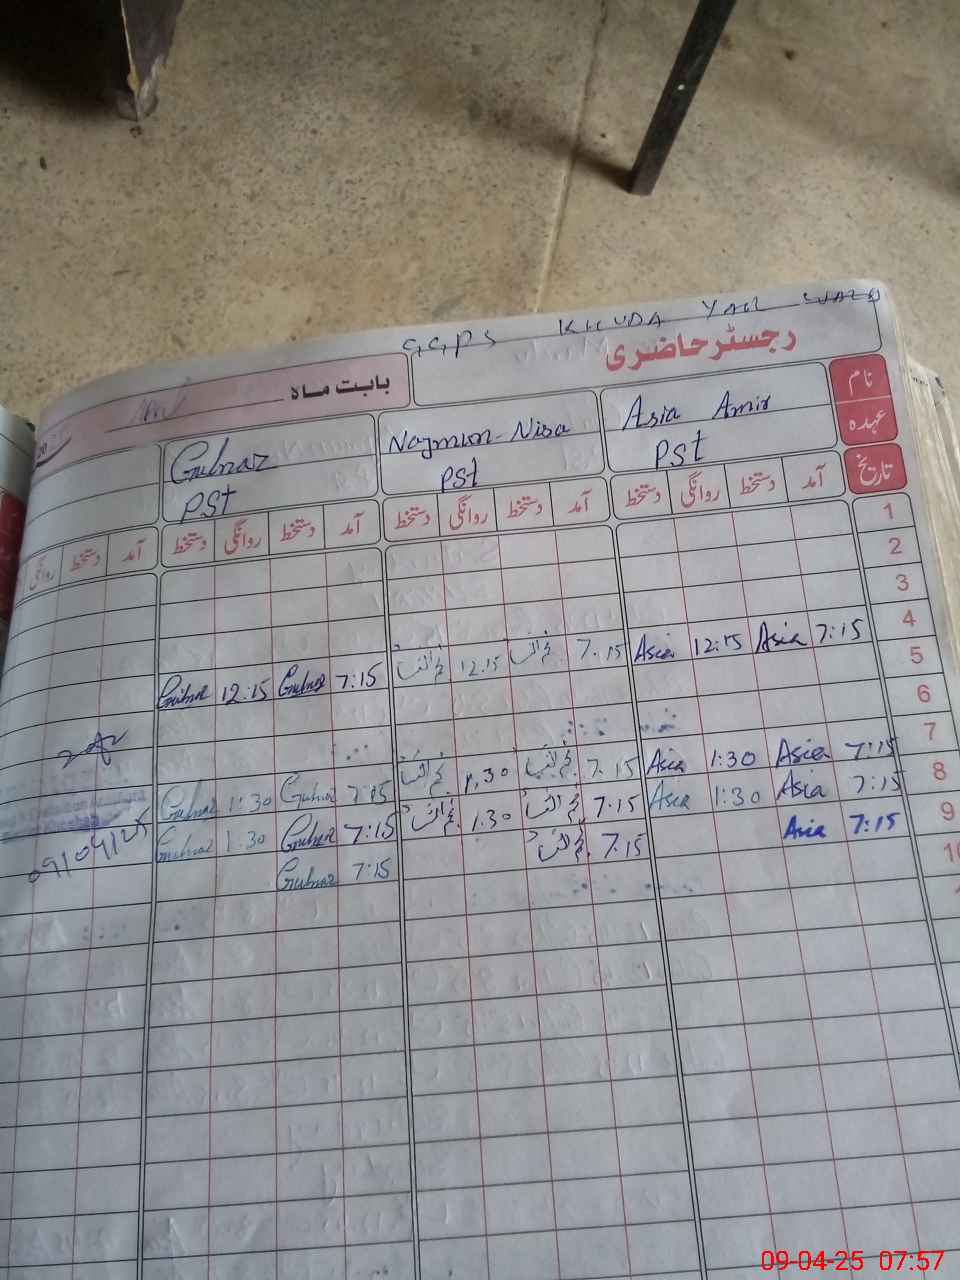 GGPS KHUDA YAR
رجسٹر حاضری
بابت ماہ
20
نام Asia Amir Najmun-Nisa Gulnaz
عہدہ PSt PSt PSt
تاریخ آمد دستخط روانگی دستخط آمد دستخط روانگی دستخط آمد دستخط روانگی دستخط آمد دستخط روانگی
1
2
3
4 7:15 Asia 12:15 Asia 7.15 12.15 7:15 Gulnaz 12:15 Gulnaz
5
6
7 7:15 Asia 1:30 Asia 7.15 1.30 7:15 Gulnaz 1:30 Gulnaz
8 7:15 Asia 1:30 Asia 7.15 1.30 7:15 Gulnaz 1:30 Gulnaz
9 7:15 Asia 7.15 7:15 Gulnaz
09/04/25
10
09-04-25 07:57